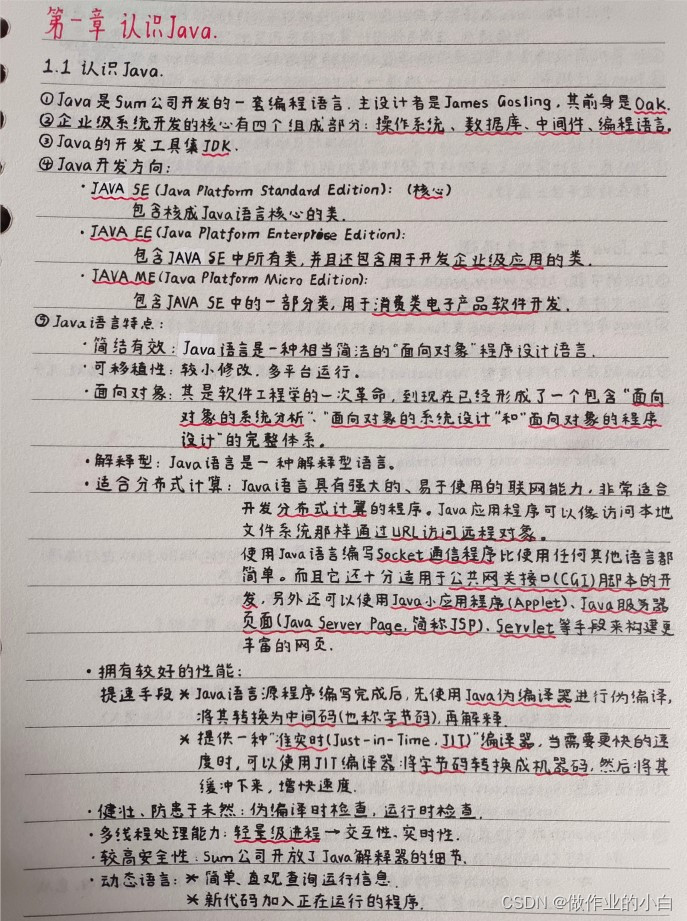 第一章 认识Java.
1.1 认识Java.
①Java是Sum公司开发的一套编程语言.主设计者是James Gosling,其前身是Oak.
②企业级系统开发的核心有四个组成部分:操作系统、数据库、中间件、编程语言.
③Java的开发工具集JDK.
④Java开发方向:
·JAVA SE(Java Platform Standard Edition): (核心)
包含核成Java语言核心的类.
·JAVA EE(Java Platform Enterprise Edition):
包含JAVA SE中所有类,并且还包含用于开发企业级应用的类.
·JAVA ME(Java Platform Micro Edition):
包含JAVA SE中的一部分类,用于消费类电子产品软件开发.
⑤Java语言特点:
·简结有效:Java语言是一种相当简洁的"面向对象"程序设计语言.
·可移植性:较小修改,多平台运行。
·面向对象:其是软件工程学的一次革命,到现在已经形成了一个包含"面向
对象的系统分析"、"面向对象的系统设计"和"面向对象的程序
设计"的完整体系。
·解释型:Java语言是一种解释型语言。
·适合分布式计算:Java语言具有强大的、易于使用的联网能力,非常适合
开发分布式计算的程序。Java应用程序可以像访问本地
文件系统那样通过URL访问远程对象。
使用Java语言编写Socket通信程序比使用任何其他语言都
简单。而且它还十分适用于公共网关接口(CGI)脚本的开
发,另外还可以使用Java小应用程序(Applet)、Java服务器
页面(Java Server Page,简称JSP)、Servlet等手段来构建更
丰富的网页.
·拥有较好的性能:
提速手段 * Java语言源程序编写完成后,先使用Java伪编译器进行伪编译,
将其转换为中间码(也称字节码),再解释.
* 提供一种"准实时(Just-in-Time,JIT)"编译器,当需要更快的速
度时,可以使用JIT编译器将字节码转换成机器码,然后将其
缓冲下来,增快速度.
·健壮、防患于未然:伪编译时检查,运行时检查.
·多线程处理能力:轻量级进程→交互性、实时性.
·较高安全性:Sum公司开放了Java解释器的细节.
·动态语言:* 简单、直观查询运行信息.
* 新代码加入正在运行的程序.
CSDN @做作业的小白